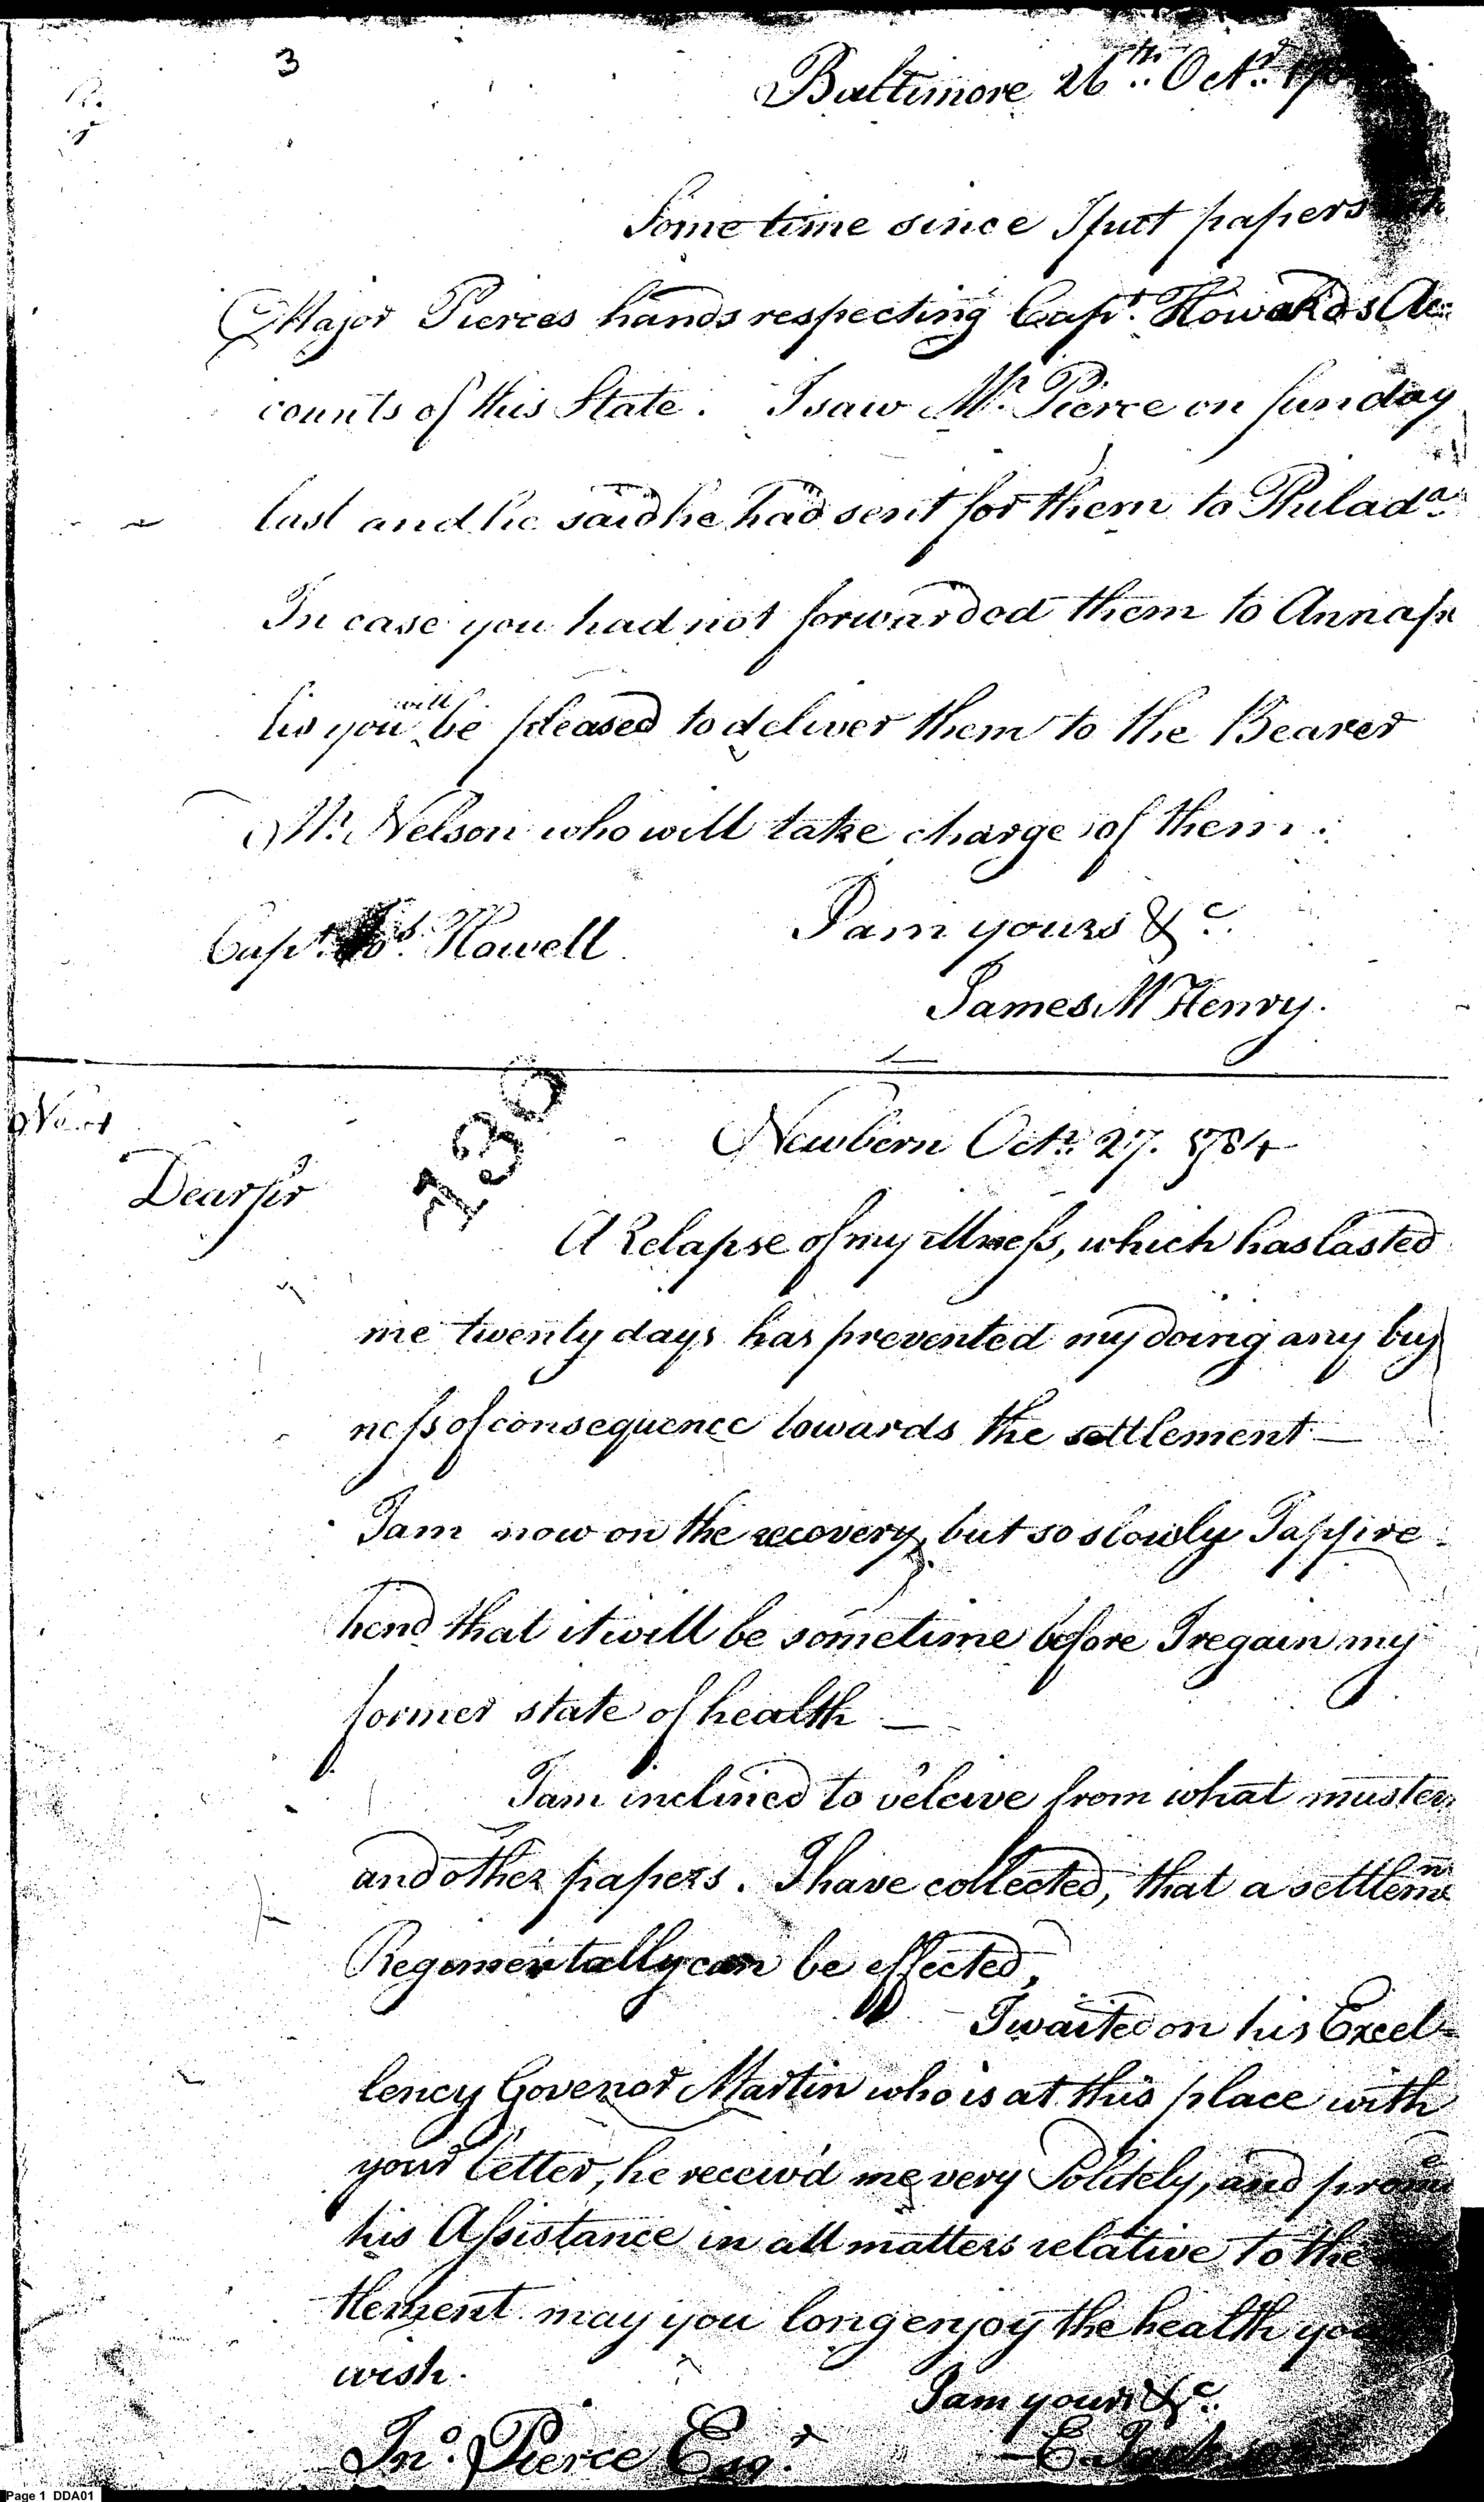 3
Baltimore 26th. Octr.
Some time since I put papers
Major Pierces hands respecting Capt. Howards Ac=
counts of this State. I saw Mr. Pierce on sunday
last and he said he had sent for them to Philada.
In case you had not forwarded them to Annapo
lis you will be pleased to deliver them to the Bearer
Mr. Nelson who will take charge of them.
I am yours &c.
Capt. Jos. Howell
James McHenry.
130
Newbern Octr. 27. 1784
Dear sir
A Relapse of my illness, which has lasted
me twenty days has prevented my doing any busy
ness of consequence towards the settlement —
I am now on the recovery, but so slowly I appre
hend that it will be sometime before I regain my
former state of health —
I am inclined to beleive from what musters
and other papers. I have collected, that a settlemnt
Regimentally can be effected,
I waited on his Excel=
lency Govenor Martin who is at this place with
your letter, he receiv'd me very Politely, and
his Assistance in all matters relative to the
tlement may you long enjoy the health you
wish.
I am yours &c.
Jno. Pierce Esqr.
E. Jackson
Page 1 DDA01